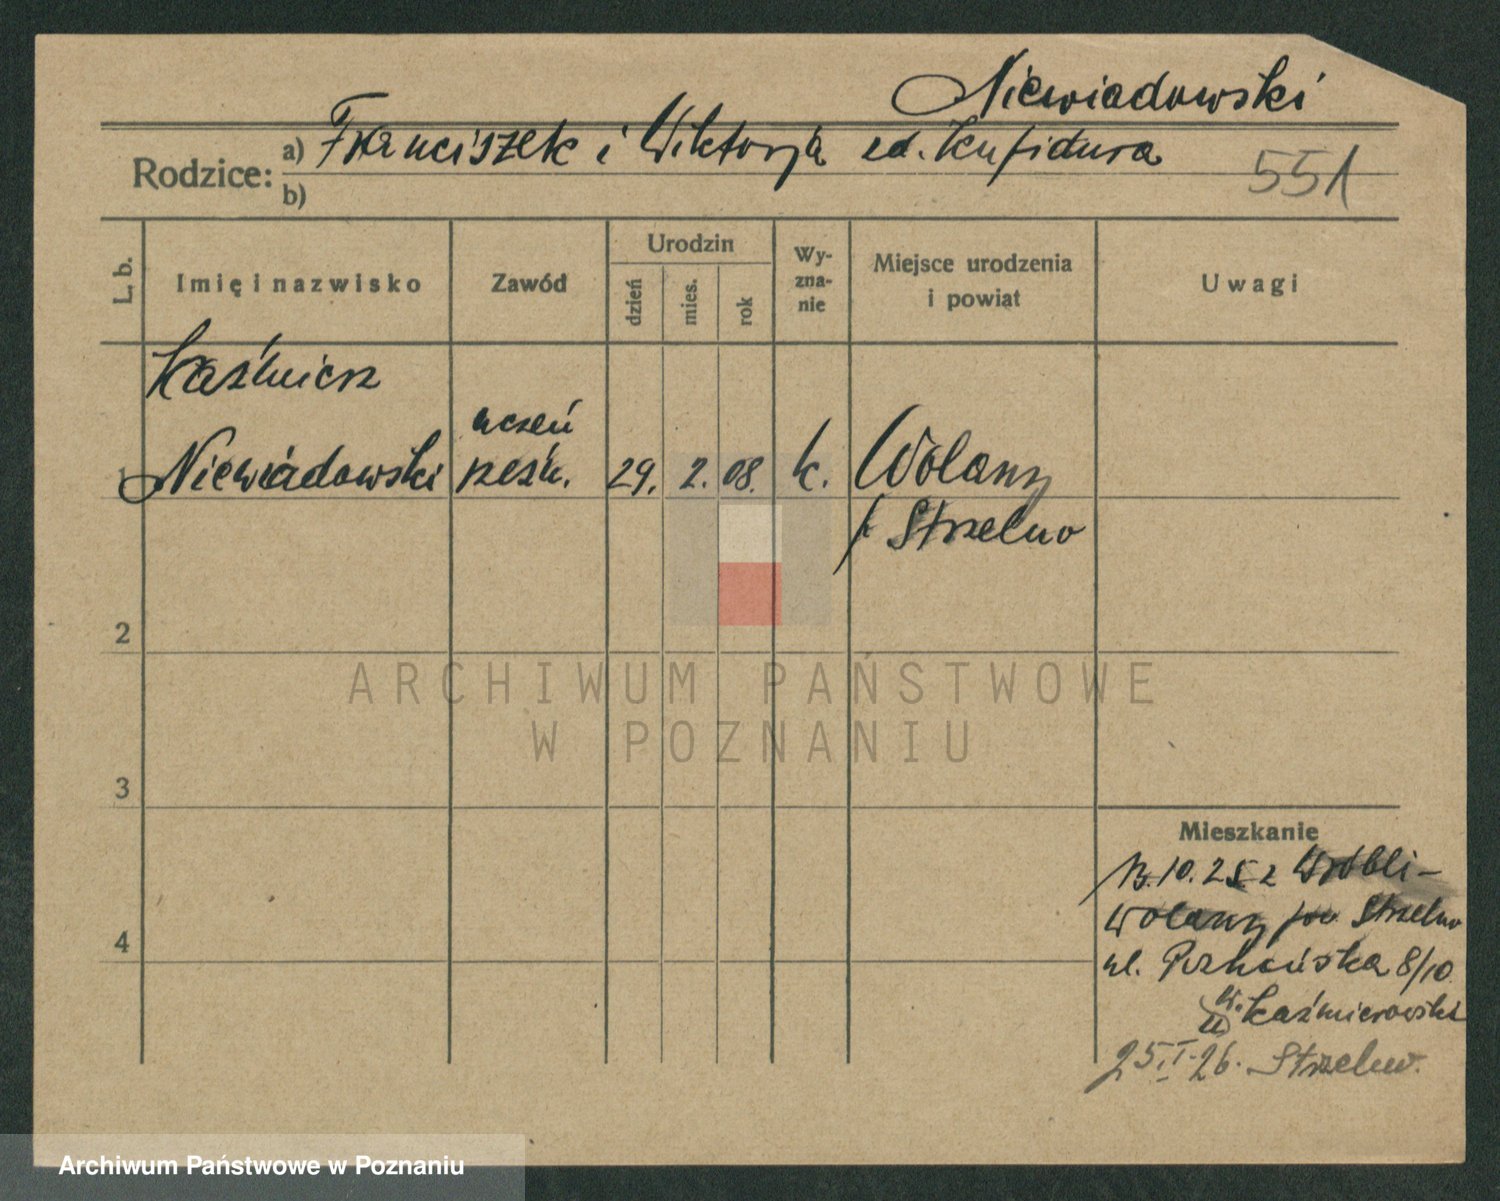 Niewiadowski
Rodzice: a) Franciszek i Wiktorja zd. Kufidura
b)
551
L. b.
Imię i nazwisko
Zawód
Urodzin
dzień
mies.
rok
Wy-
zna-
nie
Miejsce urodzenia
i powiat
Uwagi
Kaźmierz
uczeń
1 Niewiadowski rzeźn. 29. 2. 08. k. Wolany
p Strzelno
2
ARCHIWUM PAŃSTWOWE
W POZNANIU
3
Mieszkanie
13.10.25 z Wróbli-
4 Wolany pow Strzelno
ul. Poznańska 8/10
u. Kaźmierowski
25.I.26. Strzelno.
Archiwum Państwowe w Poznaniu